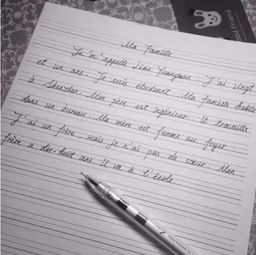 Ma Famille
Je m'appelle Yuanyuan. J'ai vingt
et un ans. Je suis étudiant. Ma famille habite
à Shenzhen. Mon père est ingénieur. Il travaille
dans un bureau. Ma mère est femme au foyer.
J'ai un frère, mais je n'ai pas de sœur. Mon
frère a dix-huit ans. Il va à l'école.